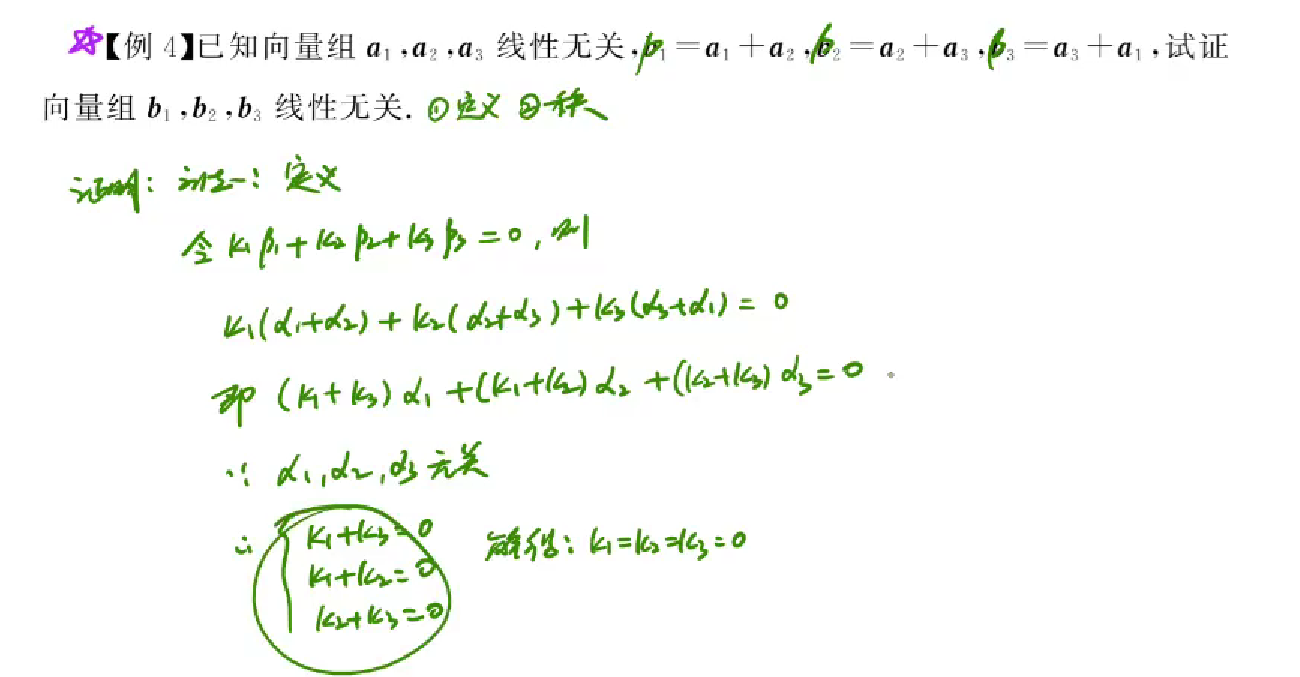 【例 4】已知向量组 a₁,a₂,a₃ 线性无关,β₁=a₁+a₂,β₂=a₂+a₃,β₃=a₃+a₁,试证
向量组 b₁,b₂,b₃ 线性无关. ①定义 ②秩
证明: 法一: 定义
令 k₁β₁+k₂β₂+k₃β₃=0, 则
k₁(α₁+α₂)+k₂(α₂+α₃)+k₃(α₃+α₁)=0
即 (k₁+k₃)α₁+(k₁+k₂)α₂+(k₂+k₃)α₃=0
∵ α₁,α₂,α₃无关
∴ { k₁+k₃=0
k₁+k₂=0 解得: k₁=k₂=k₃=0
k₂+k₃=0